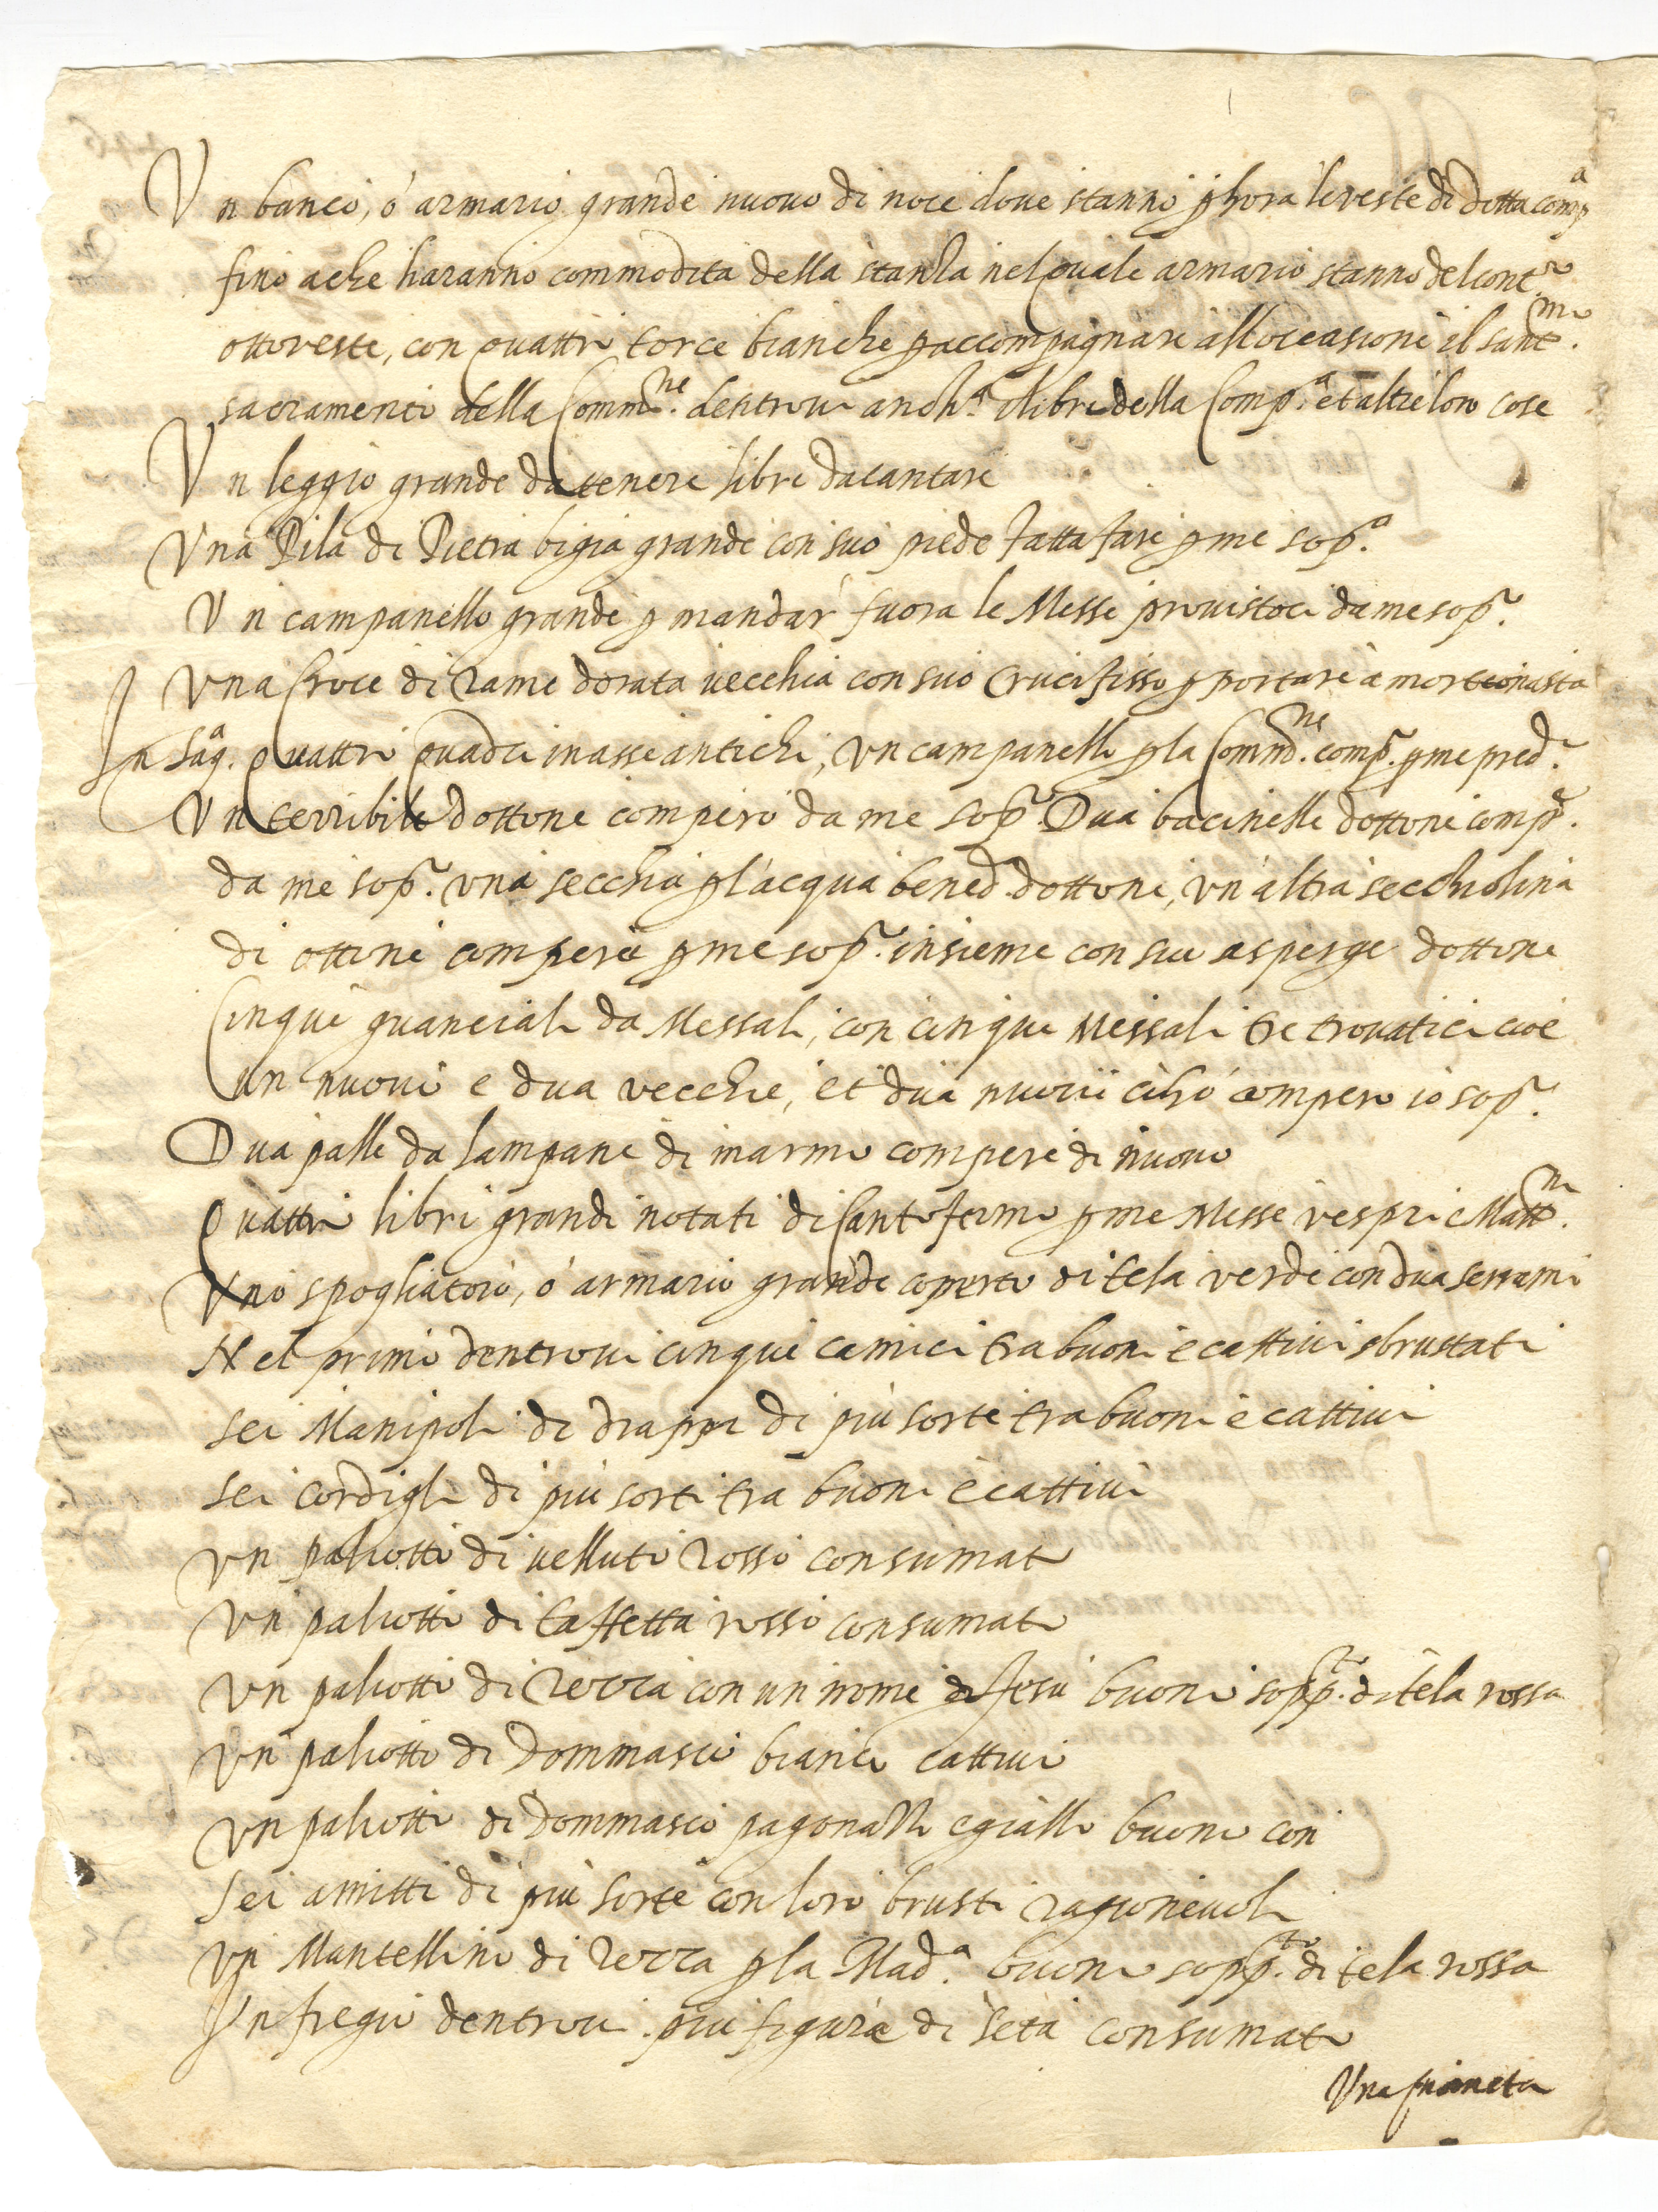 Un banco, ó armario grande nuovo di noce dove stanno p hora le veste di detta comp.a
fino a che haranno commodita della stanza nel quale armario stanno del cont.o
otto veste, con quattro torce bianche p accompagnare all occasione il sant.mo
sacramento della Comm.ne dentrovi anch.a i libri della Comp.a et altre loro cose
Un leggio grande da tenere libri da cantare
Una Pila di Pietra bigia grande con suo piede fatta fare p me sop.a
Un campanello grande p mandar fuora le Messe provistoci da me sop.o
Una Croce di rame dorata vecchia con suo Crucifisso p portare à morto
In sag.a quattro quadri in asse antichi, un campanello p la Comm.ne comp.o p me pred.o
Un terribile dottone compero da me sop.o Dua bacinelle dottone comp.e
da me sop.o una secchia p l'acqua bened.a dottone, un altra secchiolina
di ottone compera p me sop.o insieme con suo asperge dottone
Cinque guanciali da Messali, con cinque Messali tre trovatici cioè
un nuovo e dua vecchi, et dua nuovi ci hó compero io sop.o
Dua palle da lampane di marmo compere di nuovo
Quattro libri grandi notati di canto fermo p me Messe vespri e Matt.ni
Uno spogliatoio, ó armario grande coperto di tela verde con dua serrami
Nel primo dentrovi cinque camici tra buoni e cattivi sbrustati
sei Manipoli di drappi di più sorte tra buoni e cattivi
sei cordigli di più sorti tra buoni e cattivi
un paliotto di velluto rosso consumato
un paliotto di taffetta rosso consumato
un paliotto di rezza con un nome di Jesu buono sopp.to di tela rossa
un paliotto di dommasco bianco cattivo
un paliotto di dommasco pagonazzo e giallo buono con
sei amitti di più sorte con loro brusti ragionevoli
un Mantellino di rezza p la Mad.a buono sopp.to di tela rossa
Un fregio dentrovi più figure di seta consumato
Una pianeta